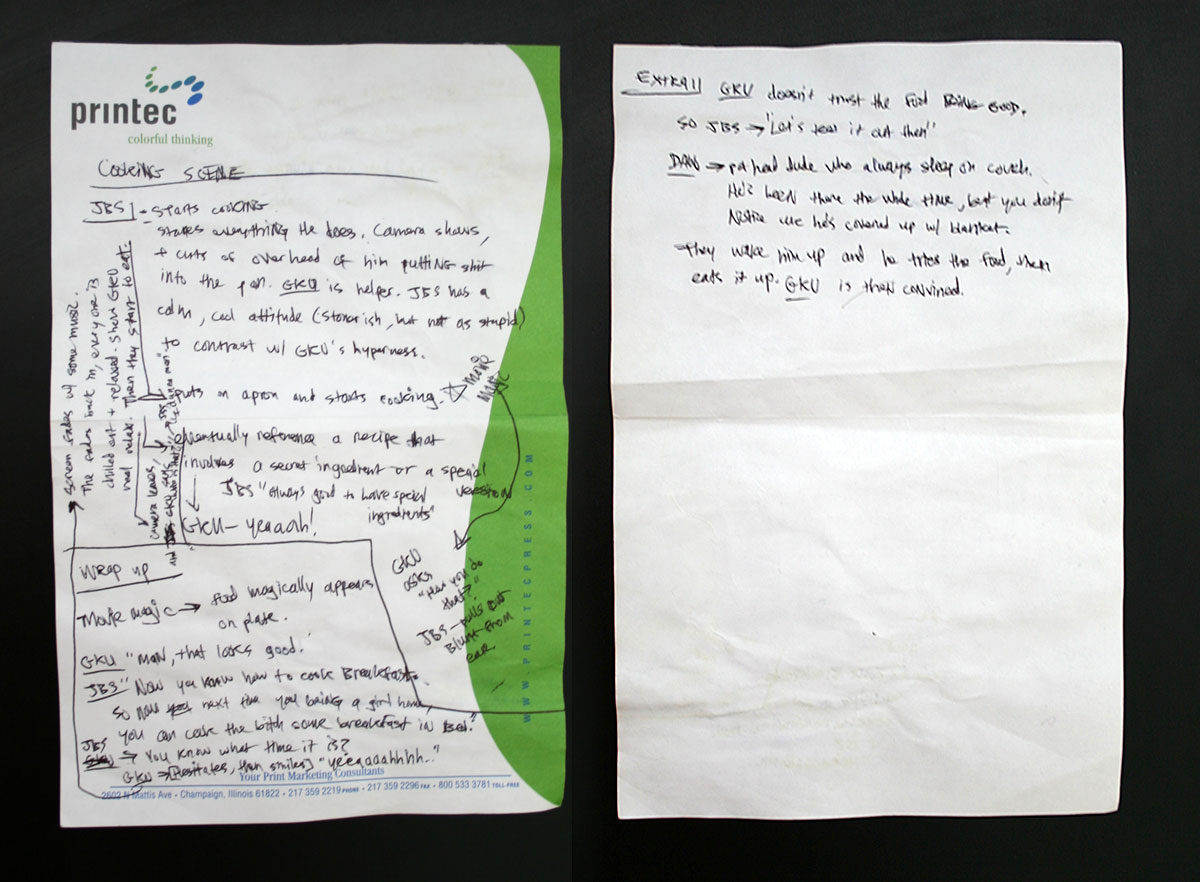 printec
colorful thinking
COOKING SCENE
JBS - starts cooking.
states everything he does. Camera shows,
+ cuts of overhead of him putting shit
into the pan. GKU is helper. JBS has a
calm, cool attitude (stonerish, but not as stupid)
to contrast w/ GKU's hyperness.
puts on apron and starts cooking. ☆ MOVIE
MAGIC
eventually reference a recipe that
involves a secret ingredient or a special
version
JBS "Always good to have special
ingredients"
GKU - yeaaah!
GKU
asks
"How you do
that?"
JBS - pulls out
Blunt from
ear.
screen fades w/ some music.
The fades back in, everyone is
chilled out + relaxed. Show GKU
and relax. Then they start to eat.
camera leaves,
GKU says
JBS
Wrap up
Movie magic → food magically appears
on plate.
GKU "MAN, that looks good."
JBS "Now you know how to cook Breakfast.
So now next time you bring a girl home,
you can cook the bitch some breakfast in bed."
JBS → You know what time it is?
GKU → [hesitates, then smiles] "yeeaaaahhhh.."
Your Print Marketing Consultants
2602 N Mattis Ave - Champaign, Illinois 61822 - 217 359 2219 PHONE - 217 359 2296 FAX - 800 533 3781 TOLL-FREE
WWW.PRINTECPRESS.COM
EXTRA! GKU doesn't trust the food BEING GOOD.
SO JBS → "Let's test it out then"
DAN → pothead dude who always sleep on couch.
He's been there the whole time, but you don't
Notice cuz he's covered up w/ blanket.
They wake him up and he tries the food, then
eats it up. GKU is then convined.